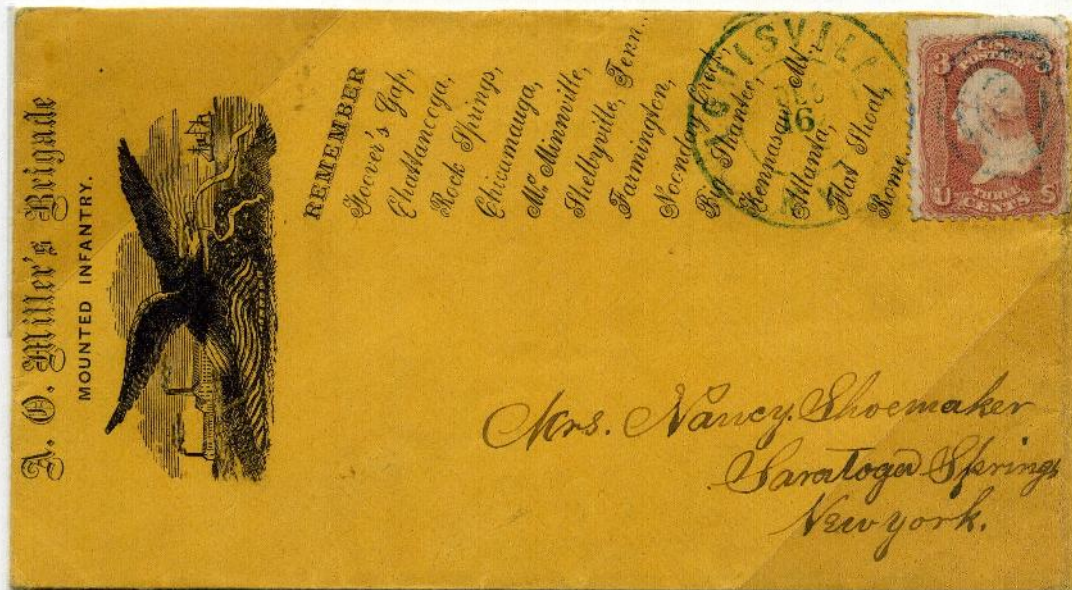 A. O. Miller's Brigade
MOUNTED INFANTRY.
REMEMBER
Hoover's Gap,
Chattanooga,
Rock Springs,
Chicamauga,
Mc. Minnville,
Shelbyville, Tenn.,
Farmington,
Noonday Creek,
Big Shantee,
Kennasaw Mt.,
Atlanta,
Flat Shoal,
Rome
16
3 3
U CENTS S
Mrs. Nancy Shoemaker
Saratoga Springs
New york.